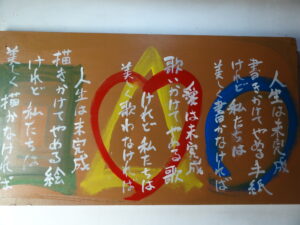 人生は未完成
書きかけてやめる手紙
けれど私たちは
美しく書かなければ
愛は未完成
歌いかけてやめる歌
けれど私たちは
美しく歌わなければ
人生は未完成
描きかけてやめる絵
けれど私たちは
美しく描かなければ